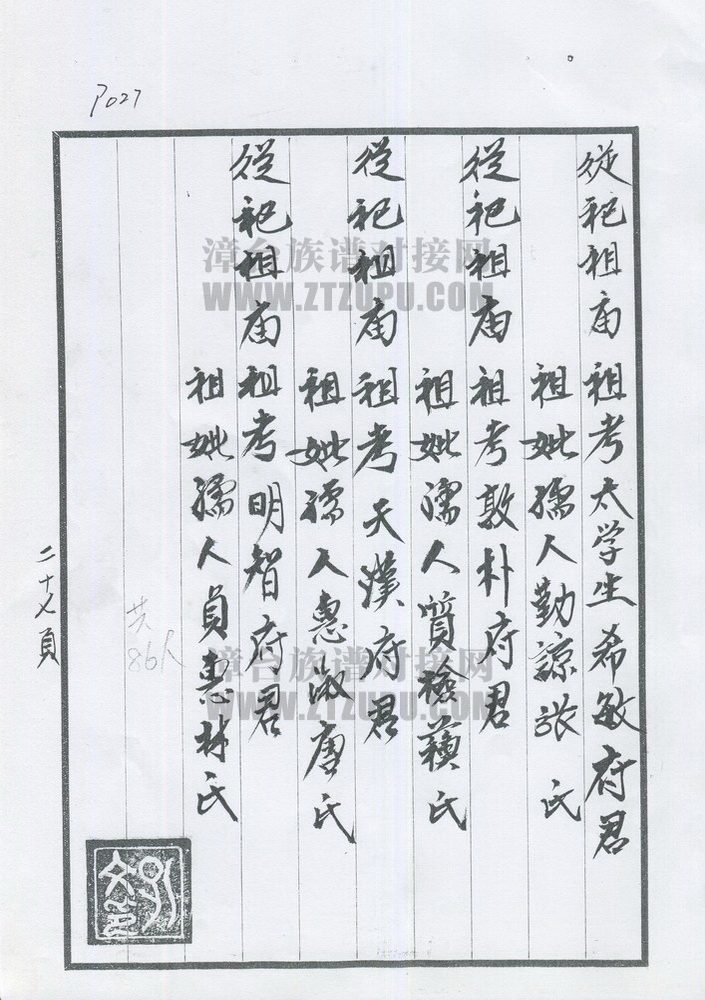 P027
從祀祖庙祖考太学生希敏府君
祖妣孺人勤諒张氏
從祀祖庙祖考敦朴府君
祖妣濡人質檢蘋氏
從祀祖庙祖考天漢府君
祖妣孺人惠淑唐氏
從祀祖庙祖考明智府君
祖妣孺人員惠林氏
共86尺
二十七頁
漳台族谱对接网
WWW.ZTZUPU.COM
漳台族谱对接网
WWW.ZTZUPU.COM